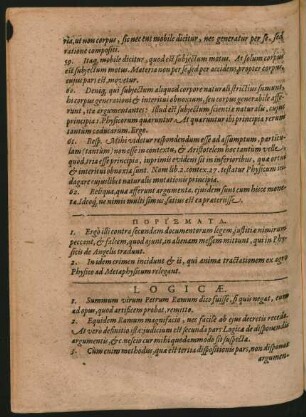 ria, ut non corpus, sic nec ens mobile dicitur, nec generatur per se, sed
ratione compositi.
59. Itaq; mobile dicitur, quod est subjectum motus. At solum corpus
est subjectum motus. Materia non per se, sed per accidens, propter corpus
cujus pars est, movetur.
60. Deniq; qui subjectum aliquod corpore naturali strictius sumunt,
hi corpus generationi & interitui obnoxium, seu corpus generabile
runt, ita argumentantes: Illud est subjectum scientiæ naturalis, cujus
principia à Physicorum quæruntur At quæruntur ibi principia rerum
tantum caducarum. Ergo.
61. Resp. Mihi videtur respondendum esse ad assumptum, particu-
lam (tantum) non esse in contextu, & Aristotelem hoc tantum velle
quod tria esse principia, inprimis evidens sit in inferioribus, quæ ortui
& interitui obnoxia sunt. Nam lib. 2. contex. 27. testatur Physicum in-
dagare cujuslibet naturalis mutationis principia.
62. Reliqua, quæ afferunt argumenta, ejusdem sunt cum hisce mone-
tæ. Ideoq; ne nimis multi simus, satius est ea præterisse.
ΠΟΡΙΣΜΑΤΑ.
1. Ergò illi contra secundam documentorum legem, justitiæ nimirum
peccent, & falcem, quod ajunt, in alienam messem mittunt, qui in Phy-
sicis de Angelis tradunt.
2. In idem crimen incidunt & ii, qui anima tractationem ex agro
Physico ad Metaphysicum relegant.
LOGICÆ.
1. Summum virum Petrum Ramum dicto fuisse, si quis negat, eum
ad opus, quod artificem probat, remitto.
2. Equidem Ramum magnifacio, nec facilè ab ejus decretis recedo.
At verò definitio est & judicium est secunda pars Logicæ de disponendis
argumentis &c. nescio cur mihi quodammodo sit suspecta.
3. Cum enim methodus, quæ est tertia dispositionis pars, non disponat
argumen-